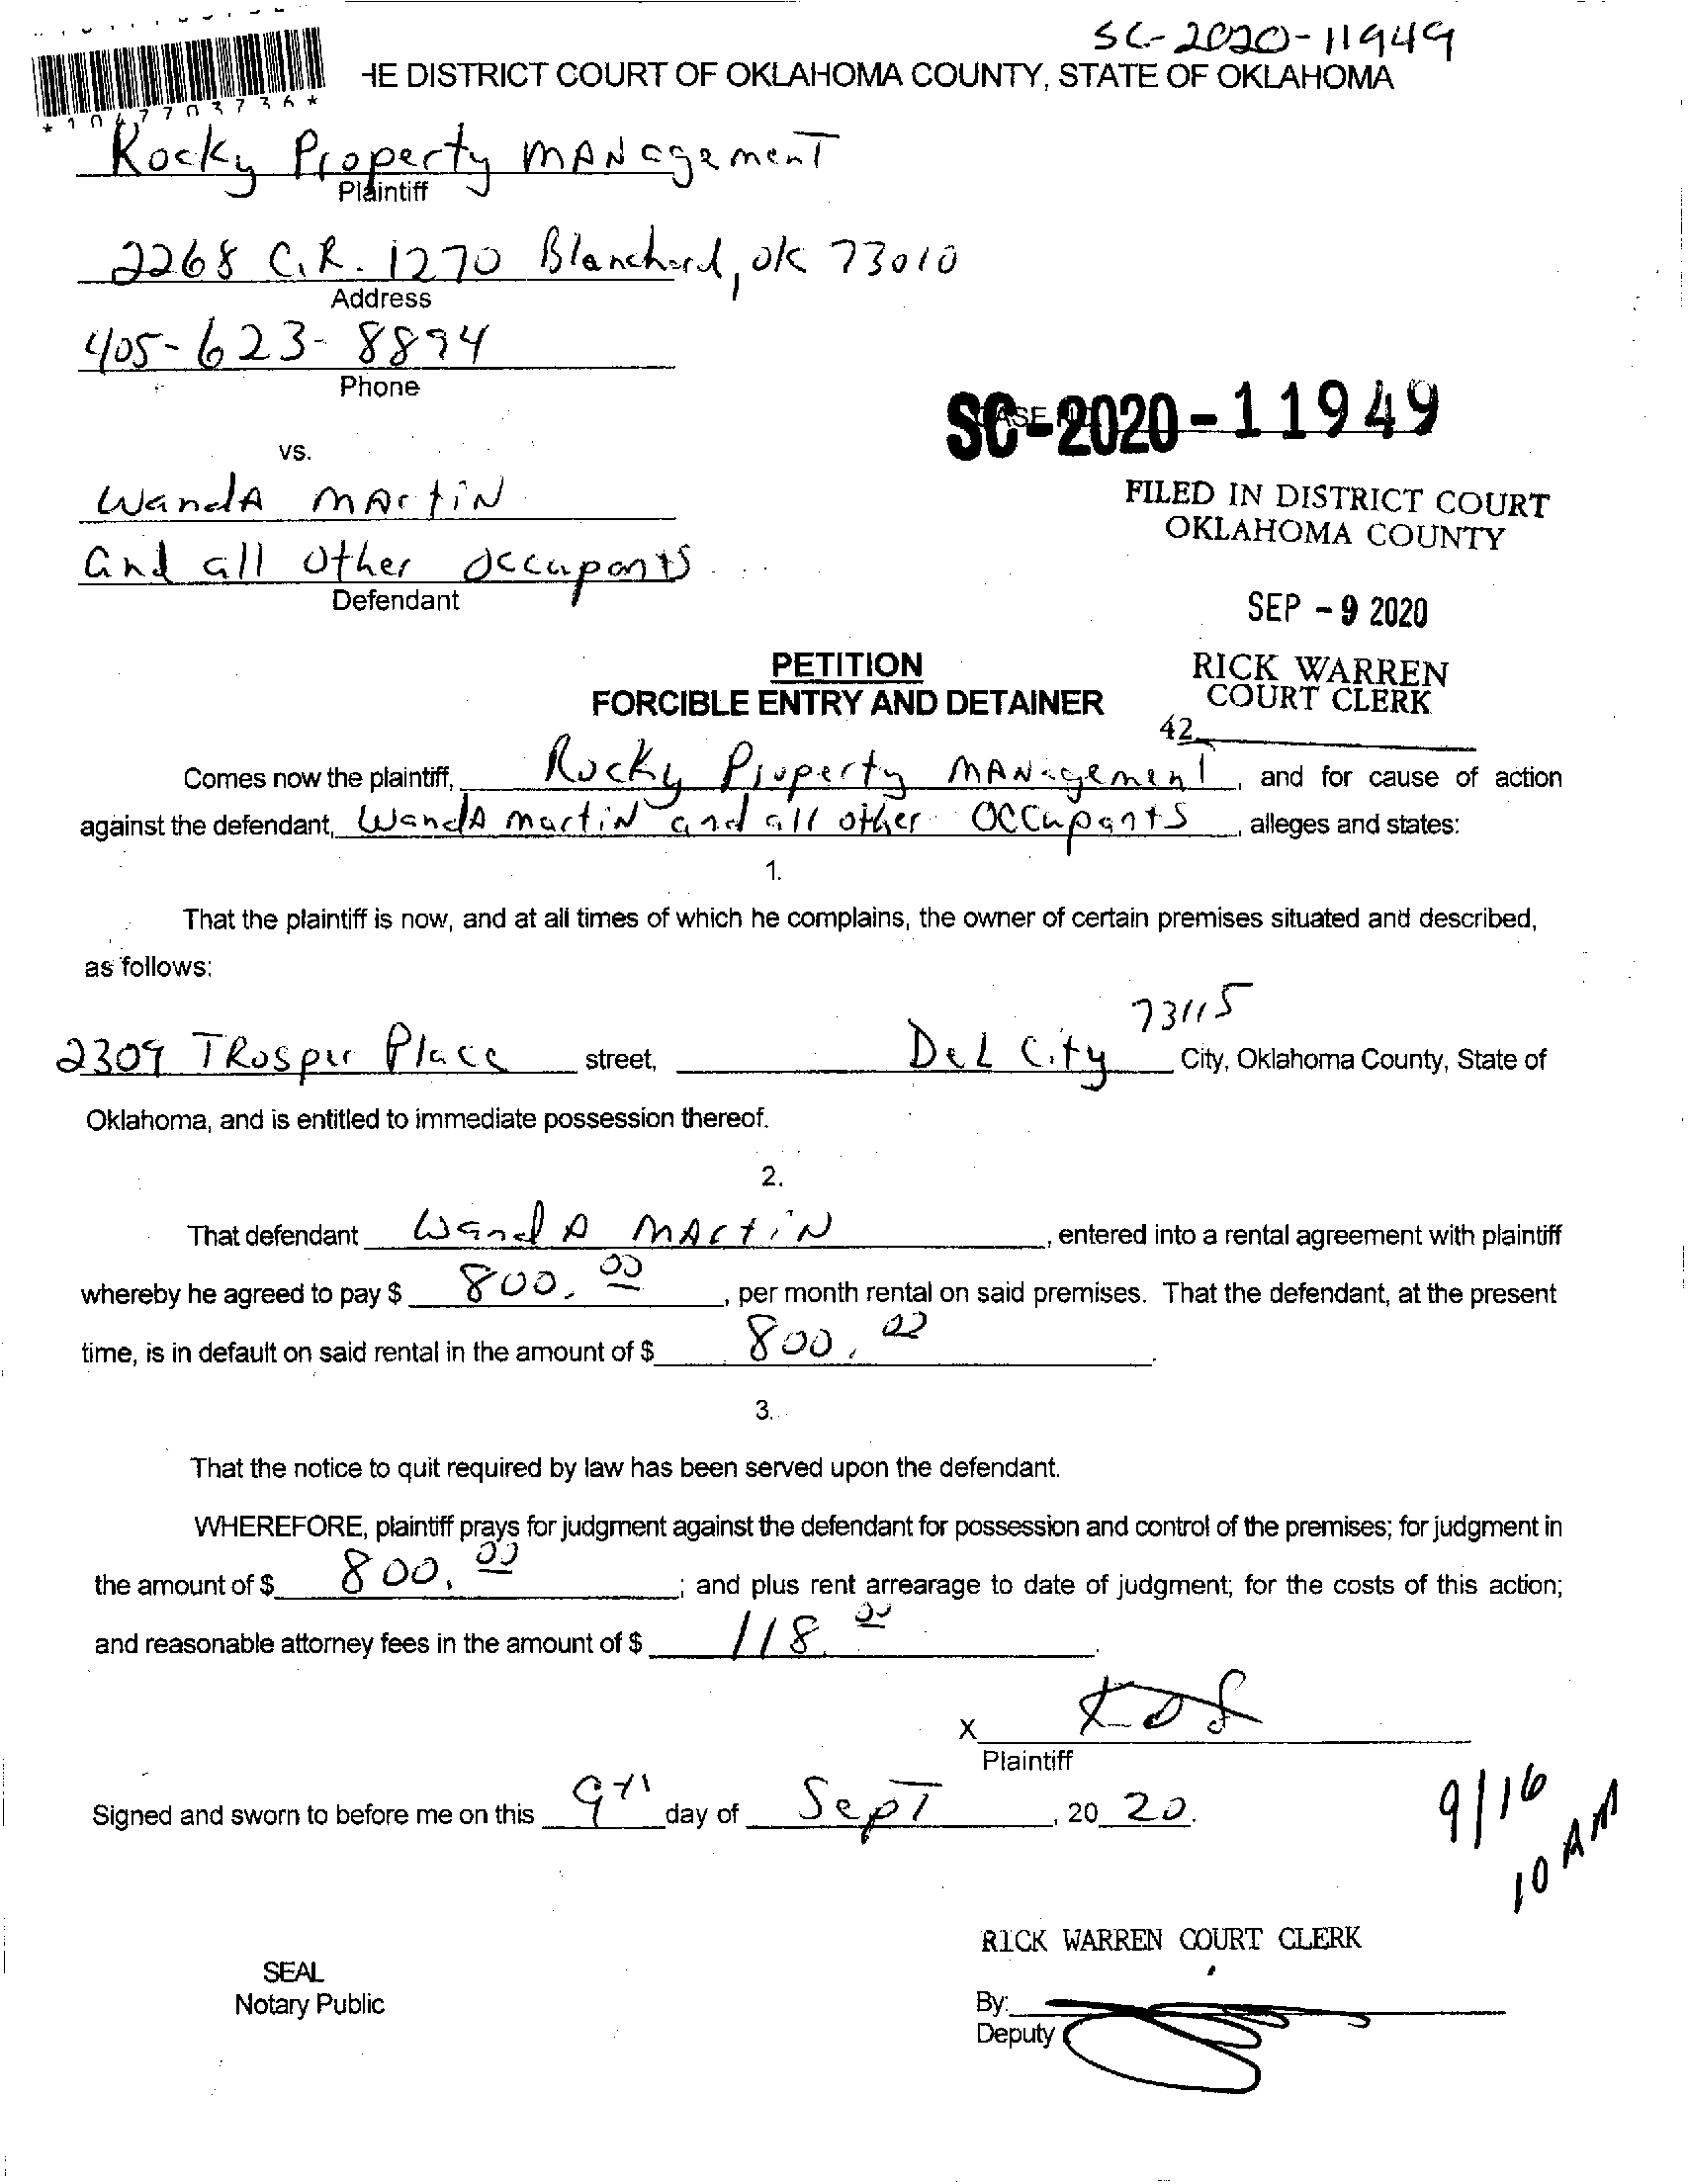 SC-2020-11949
HE DISTRICT COURT OF OKLAHOMA COUNTY, STATE OF OKLAHOMA
*1047703736*
Rocky Property MANagemenT
Plaintiff
2268 C.R. 1270 Blanchard, ok 73010
Address
405-623-8894
Phone
SC-2020-11949
vs.
WandA MArtiN
and all other occupants
Defendant
FILED IN DISTRICT COURT
OKLAHOMA COUNTY
SEP - 9 2020
RICK WARREN
COURT CLERK
42
PETITION
FORCIBLE ENTRY AND DETAINER
Comes now the plaintiff, Rocky Property MANagement, and for cause of action
against the defendant, WandA martiN and all other OCCupants, alleges and states:
1.
That the plaintiff is now, and at all times of which he complains, the owner of certain premises situated and described,
as follows:
73115
2309 TRosper Place street, DeL City City, Oklahoma County, State of
Oklahoma, and is entitled to immediate possession thereof.
2.
That defendant WandA MArtiN, entered into a rental agreement with plaintiff
whereby he agreed to pay $ 800.00, per month rental on said premises. That the defendant, at the present
time, is in default on said rental in the amount of $ 800.00.
3.
That the notice to quit required by law has been served upon the defendant.
WHEREFORE, plaintiff prays for judgment against the defendant for possession and control of the premises; for judgment in
the amount of $ 800.00; and plus rent arrearage to date of judgment; for the costs of this action;
and reasonable attorney fees in the amount of $ 118.00.
X
Plaintiff
Signed and sworn to before me on this 9th day of SepT, 20 20.
9/16
10 AM
RICK WARREN COURT CLERK
SEAL
Notary Public
By:
Deputy